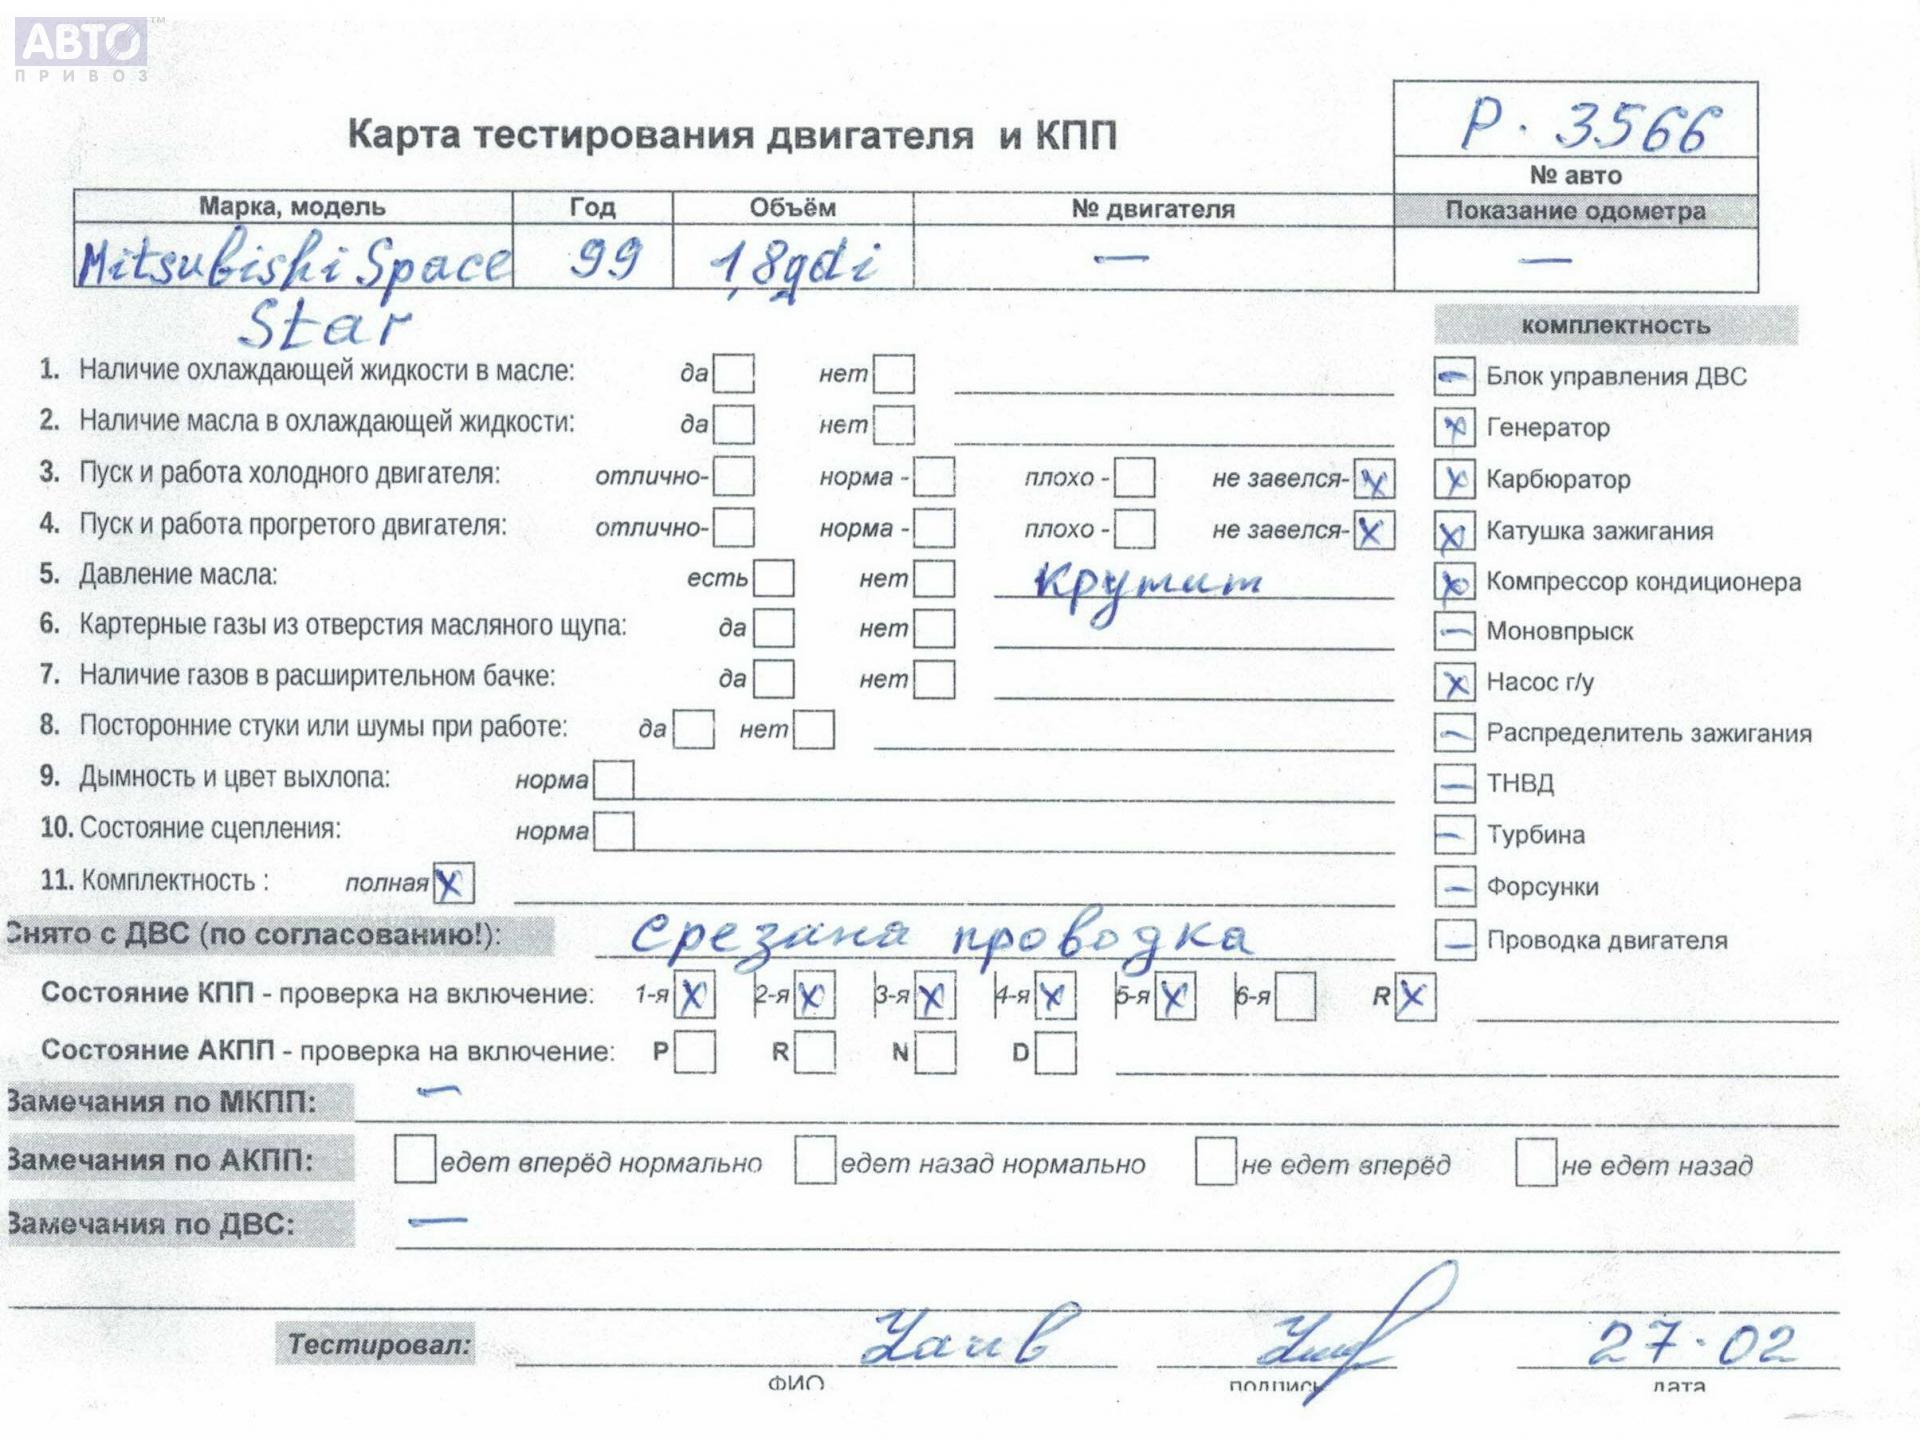 АВТО™
ПРИВОЗ
Р. 3566
Карта тестирования двигателя и КПП
№ авто
Марка, модель Год Объём № двигателя Показание одометра
Mitsubishi Space 99 1,8gdi — —
Star
комплектность
1. Наличие охлаждающей жидкости в масле: да нет
Блок управления ДВС
2. Наличие масла в охлаждающей жидкости: да нет
Генератор
3. Пуск и работа холодного двигателя: отлично- норма - плохо - не завелся- x
Карбюратор
4. Пуск и работа прогретого двигателя: отлично- норма - плохо - не завелся- x
Катушка зажигания
5. Давление масла: есть нет крутит
Компрессор кондиционера
6. Картерные газы из отверстия масляного щупа: да нет
Моновпрыск
7. Наличие газов в расширительном бачке: да нет
Насос г/у
8. Посторонние стуки или шумы при работе: да нет
Распределитель зажигания
9. Дымность и цвет выхлопа: норма
ТНВД
10. Состояние сцепления: норма
Турбина
11. Комплектность : полная x
Форсунки
Снято с ДВС (по согласованию!): срезана проводка
Проводка двигателя
Состояние КПП - проверка на включение: 1-я x 2-я x 3-я x 4-я x 5-я x 6-я R x
Состояние АКПП - проверка на включение: P R N D
Замечания по МКПП: —
Замечания по АКПП: едет вперёд нормально едет назад нормально не едет вперёд не едет назад
Замечания по ДВС: —
Тестировал: 27.02
ФИО подпись дата